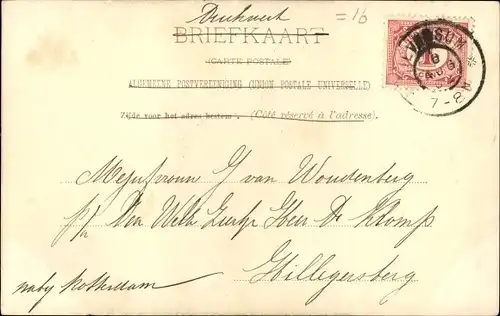 Drukwerk
=16
BRIEFKAART
(CARTE POSTALE)
ALGEMEENE POSTVEREENIGING (UNION POSTALE UNIVERSELLE)
Zijde voor het adres bestemd. (Côté réservé à l'adresse).
HILVERSUM
7-8
Mejufvrouw J van Woudenberg
p/a Den Weled. Zeergel. Heer Dr Klomp
Hillegersberg
naby Rotterdam